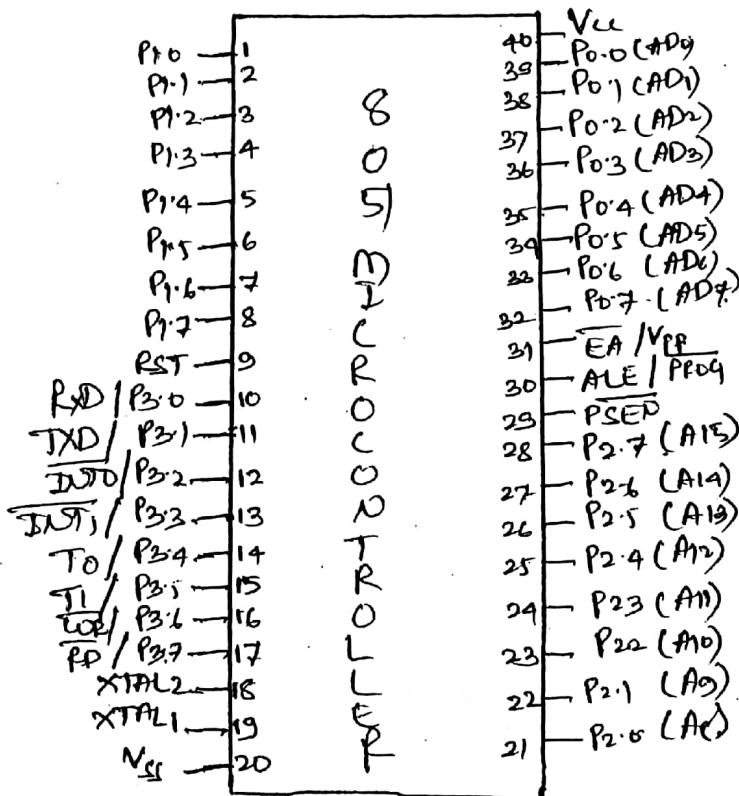 P1.0 1
P1.1 2
P1.2 3
P1.3 4
P1.4 5
P1.5 6
P1.6 7
P1.7 8
RST 9
RXD / P3.0 10
TXD / P3.1 11
INT0 / P3.2 12
INT1 / P3.3 13
T0 / P3.4 14
T1 / P3.5 15
WR / P3.6 16
RD / P3.7 17
XTAL2 18
XTAL1 19
VSS 20
8051 MICROCONTROLLER
40 Vcc
39 P0.0 (AD0)
38 P0.1 (AD1)
37 P0.2 (AD2)
36 P0.3 (AD3)
35 P0.4 (AD4)
34 P0.5 (AD5)
33 P0.6 (AD6)
32 P0.7 (AD7)
31 EA / VPP
30 ALE / PROG
29 PSEN
28 P2.7 (A15)
27 P2.6 (A14)
26 P2.5 (A13)
25 P2.4 (A12)
24 P23 (A11)
23 P22 (A10)
22 P2.1 (A9)
21 P2.0 (A8)